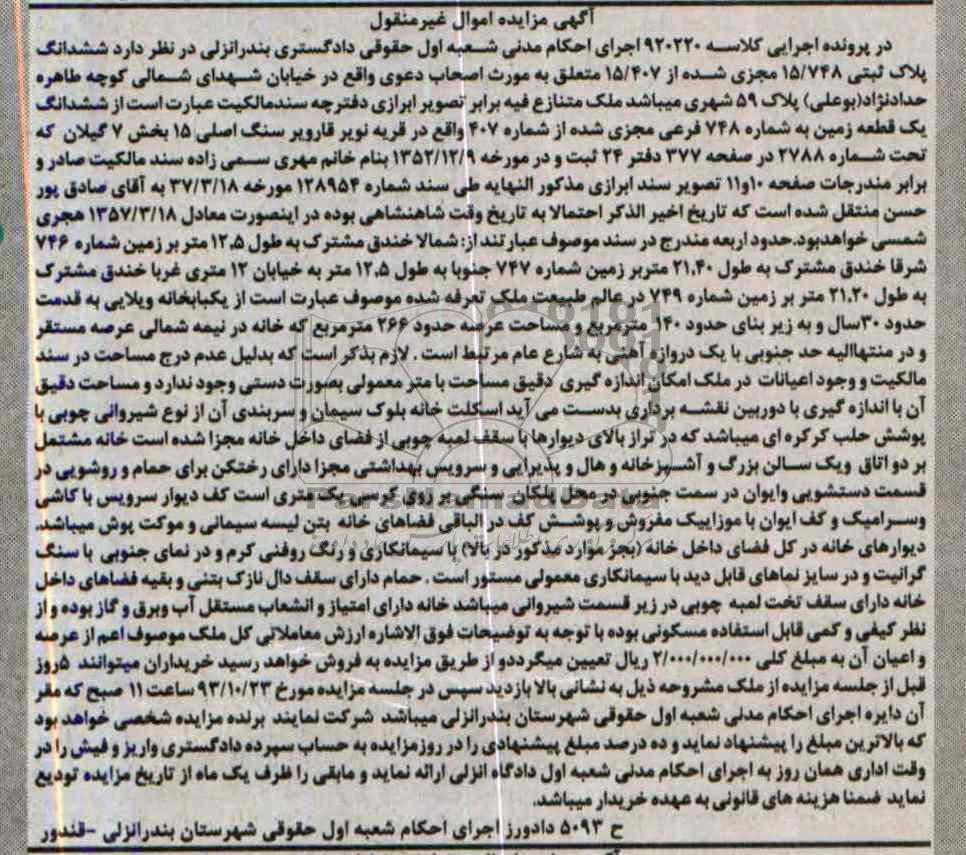 آگهی مزایده اموال غیرمنقول
در پرونده اجرایی کلاسه ۹۲۰۲۲۰ اجرای احکام مدنی شعبه اول حقوقی دادگستری بندرانزلی در نظر دارد ششدانگ
پلاک ثبتی ۱۵/۷۴۸ مجزی شده از ۱۵/۴۰۷ متعلق به مورث اصحاب دعوی واقع در خیابان شهدای شمالی کوچه طاهره
حدادنژاد(بوعلی) پلاک ۵۹ شهری میباشد ملک متنازع فیه برابر تصویر ابرازی دفترچه سندمالکیت عبارت است از ششدانگ
یک قطعه زمین به شماره ۷۴۸ فرعی مجزی شده از شماره ۴۰۷ واقع در قریه نویر قارویر سنگ اصلی ۱۵ بخش ۷ گیلان که
تحت شماره ۲۷۸۸ در صفحه ۳۷۷ دفتر ۲۴ ثبت و در مورخه ۱۳۵۲/۱۲/۹ بنام خانم مهری سمی زاده سند مالکیت صادر و
برابر مندرجات صفحه ۱۰و۱۱ تصویر سند ابرازی مذکور النهایه طی سند شماره ۱۲۸۹۵۴ مورخه ۳۷/۳/۱۸ به آقای صادق پور
حسن منتقل شده است که تاریخ اخیر الذکر احتمالا به تاریخ وقت شاهنشاهی بوده در اینصورت معادل ۱۳۵۷/۳/۱۸ هجری
شمسی خواهدبود.حدود اربعه مندرج در سند موصوف عبارتند از: شمالا خندق مشترک به طول ۱۲.۵ متر بر زمین شماره ۷۴۶
شرقا خندق مشترک به طول ۲۱.۴۰ متربر زمین شماره ۷۴۷ جنوبا به طول ۱۲.۵ متر به خیابان ۱۲ متری غربا خندق مشترک
به طول ۲۱.۲۰ متر بر زمین شماره ۷۴۹ در عالم طبیعت ملک تعرفه شده موصوف عبارت است از یکبابخانه ویلایی به قدمت
حدود ۳۰سال و به زیر بنای حدود ۱۴۰ مترمربع و مساحت عرصه حدود ۲۶۶ مترمربع که خانه در نیمه شمالی عرصه مستقر
و در منتهاالیه حد جنوبی با یک دروازه آهنی به شارع عام مرتبط است . لازم بذکر است که بدلیل عدم درج مساحت در سند
مالکیت و وجود اعیانات در ملک امکان اندازه گیری دقیق مساحت با متر معمولی بصورت دستی وجود ندارد و مساحت دقیق
آن با اندازه گیری با دوربین نقشه برداری بدست می آید اسکلت خانه بلوک سیمان و سربندی آن از نوع شیروانی چوبی با
پوشش حلب کرکره ای میباشد که در تراز بالای دیوارها با سقف لمبه چوبی از فضای داخل خانه مجزا شده است خانه مشتمل
بر دو اتاق ویک سالن بزرگ و آشپزخانه و هال و پذیرایی و سرویس بهداشتی مجزا دارای رختکن برای حمام و روشویی در
قسمت دستشویی وایوان در سمت جنوبی در محل پلکان سنگی بر روی کرسی یک متری است کف دیوار سرویس با کاشی
وسرامیک و کف ایوان با موزاییک مفروش و پوشش کف در الباقی فضاهای خانه بتن لیسه سیمانی و موکت پوش میباشد.
دیوارهای خانه در کل فضای داخل خانه (بجز موارد مذکور در بالا) با سیمانکاری و رنگ روغنی کرم و در نمای جنوبی با سنگ
گرانیت و در سایز نماهای قابل دید با سیمانکاری معمولی مستور است . حمام دارای سقف دال نازک بتنی و بقیه فضاهای داخل
خانه دارای سقف تخت لمبه چوبی در زیر قسمت شیروانی میباشد خانه دارای امتیاز و انشعاب مستقل آب وبرق و گاز بوده و از
نظر کیفی و کمی قابل استفاده مسکونی بوده با توجه به توضیحات فوق الاشاره ارزش معاملاتی کل ملک موصوف اعم از عرصه
و اعیان آن به مبلغ کلی ۲/۰۰۰/۰۰۰/۰۰۰ ریال تعیین میگرددو از طریق مزایده به فروش خواهد رسید خریداران میتوانند ۵روز
قبل از جلسه مزایده از ملک مشروحه ذیل به نشانی بالا بازدید سپس در جلسه مزایده مورخ ۹۳/۱۰/۲۳ ساعت ۱۱ صبح که مقر
آن دایره اجرای احکام مدنی شعبه اول حقوقی شهرستان بندرانزلی میباشد شرکت نمایند برنده مزایده شخصی خواهد بود
که بالاترین مبلغ را پیشنهاد نماید و ده درصد مبلغ پیشنهادی را در روزمزایده به حساب سپرده دادگستری واریز و فیش را در
وقت اداری همان روز به اجرای احکام مدنی شعبه اول دادگاه انزلی ارائه نماید و مابقی را ظرف یک ماه از تاریخ مزایده تودیع
نماید ضمنا هزینه های قانونی به عهده خریدار میباشد.
ح ۵۰۹۳ دادورز اجرای احکام شعبه اول حقوقی شهرستان بندرانزلی -قندور